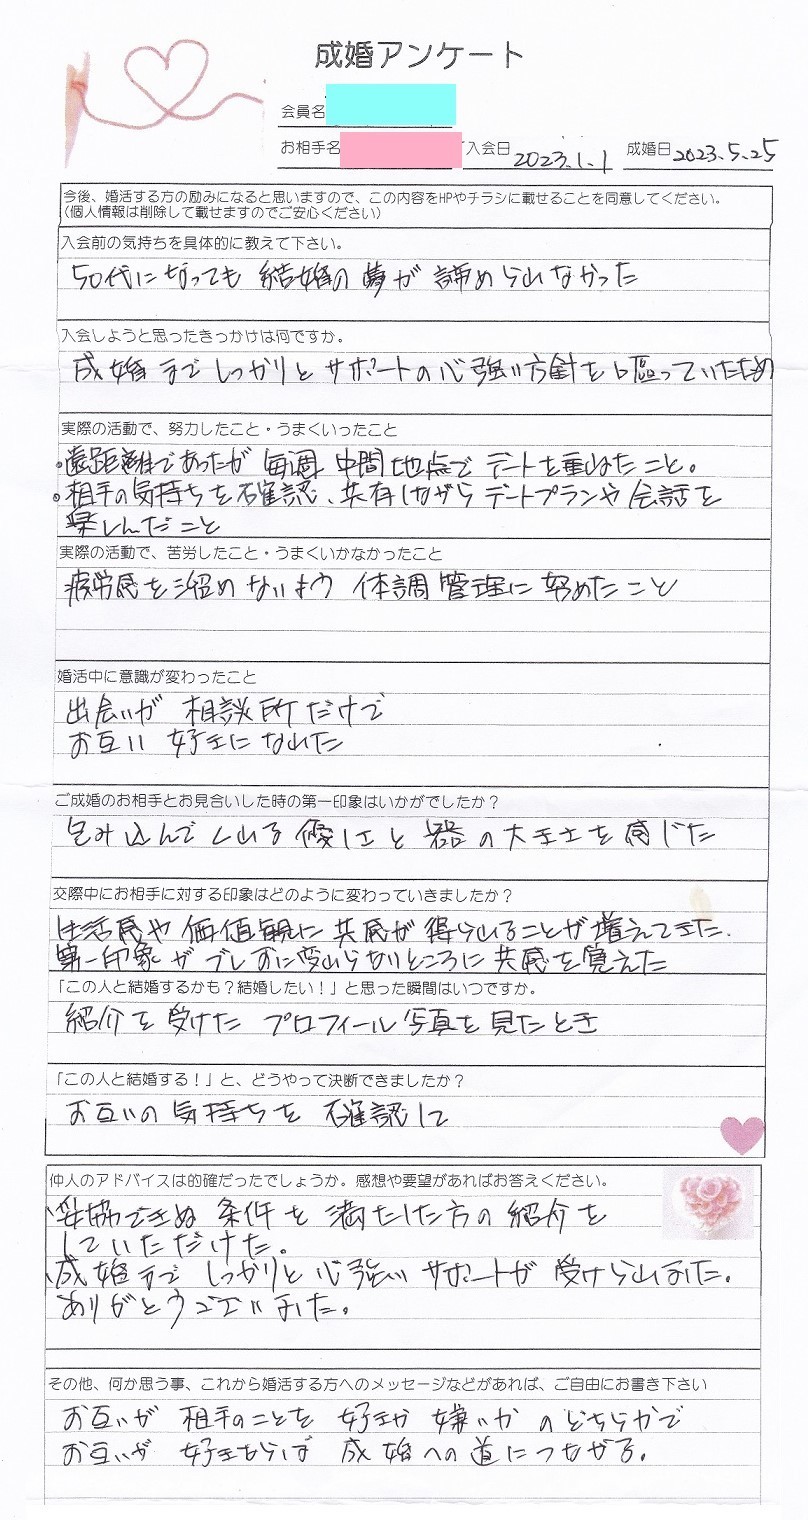 成婚アンケート
会員名
お相手名 入会日 2023.1.1 成婚日 2023.5.25
今後、婚活する方の励みになると思いますので、この内容をHPやチラシに載せることを同意してください。
（個人情報は削除して載せますのでご安心ください）
入会前の気持ちを具体的に教えて下さい。
50代になっても 結婚の夢が 諦められなかった
入会しようと思ったきっかけは何ですか。
成婚までしっかりとサポートの心強い方針を謳っていたため
実際の活動で、努力したこと・うまくいったこと
・遠距離であったが 毎週 中間地点で デートを重ねたこと。
・相手の気持ちを確認、共有しながら デートプランや 会話を
楽しんだこと
実際の活動で、苦労したこと・うまくいかなかったこと
疲労感を溜めないよう 体調管理に 努めたこと
婚活中に意識が変わったこと
出会いが 相談所だけで
お互い 好きになれた
ご成婚のお相手とお見合いした時の第一印象はいかがでしたか？
包み込んでくれる 優しさと 器の大きさを 感じた
交際中にお相手に対する印象はどのように変わっていきましたか？
生活感や 価値観に 共感が 得られることが 増えてきた.
第一印象が ブレずに変わらないところに 共感を覚えた
「この人と結婚するかも？結婚したい！」と思った瞬間はいつですか。
紹介を受けた プロフィール写真を 見たとき
「この人と結婚する！」と、どうやって決断できましたか？
お互いの気持ちを 確認して
仲人のアドバイスは的確だったでしょうか。感想や要望があればお答えください。
、妥協できぬ 条件を 満たした方の 紹介を
していただけた。
、成婚まで しっかりと 心強い サポートが 受けられました。
ありがとうございました。
その他、何か思う事、これから婚活する方へのメッセージなどがあれば、ご自由にお書き下さい
お互いが 相手のことを 好きか 嫌いか のどちらかで
お互いが 好きならば 成婚への道につながる。